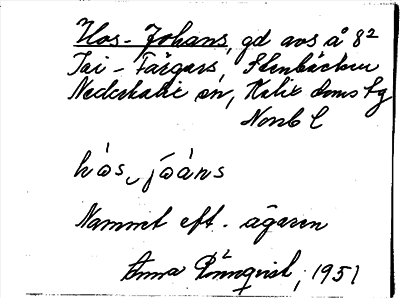 Hos-Johans, gd avs å 8²
Tai-Färgars, Stenbäcken
Nederkalix sn, Kalix doms Lg
Norrb l
hòs‿jóàns
Namnet eft. ägaren
Anna Rönnqvist, 1951